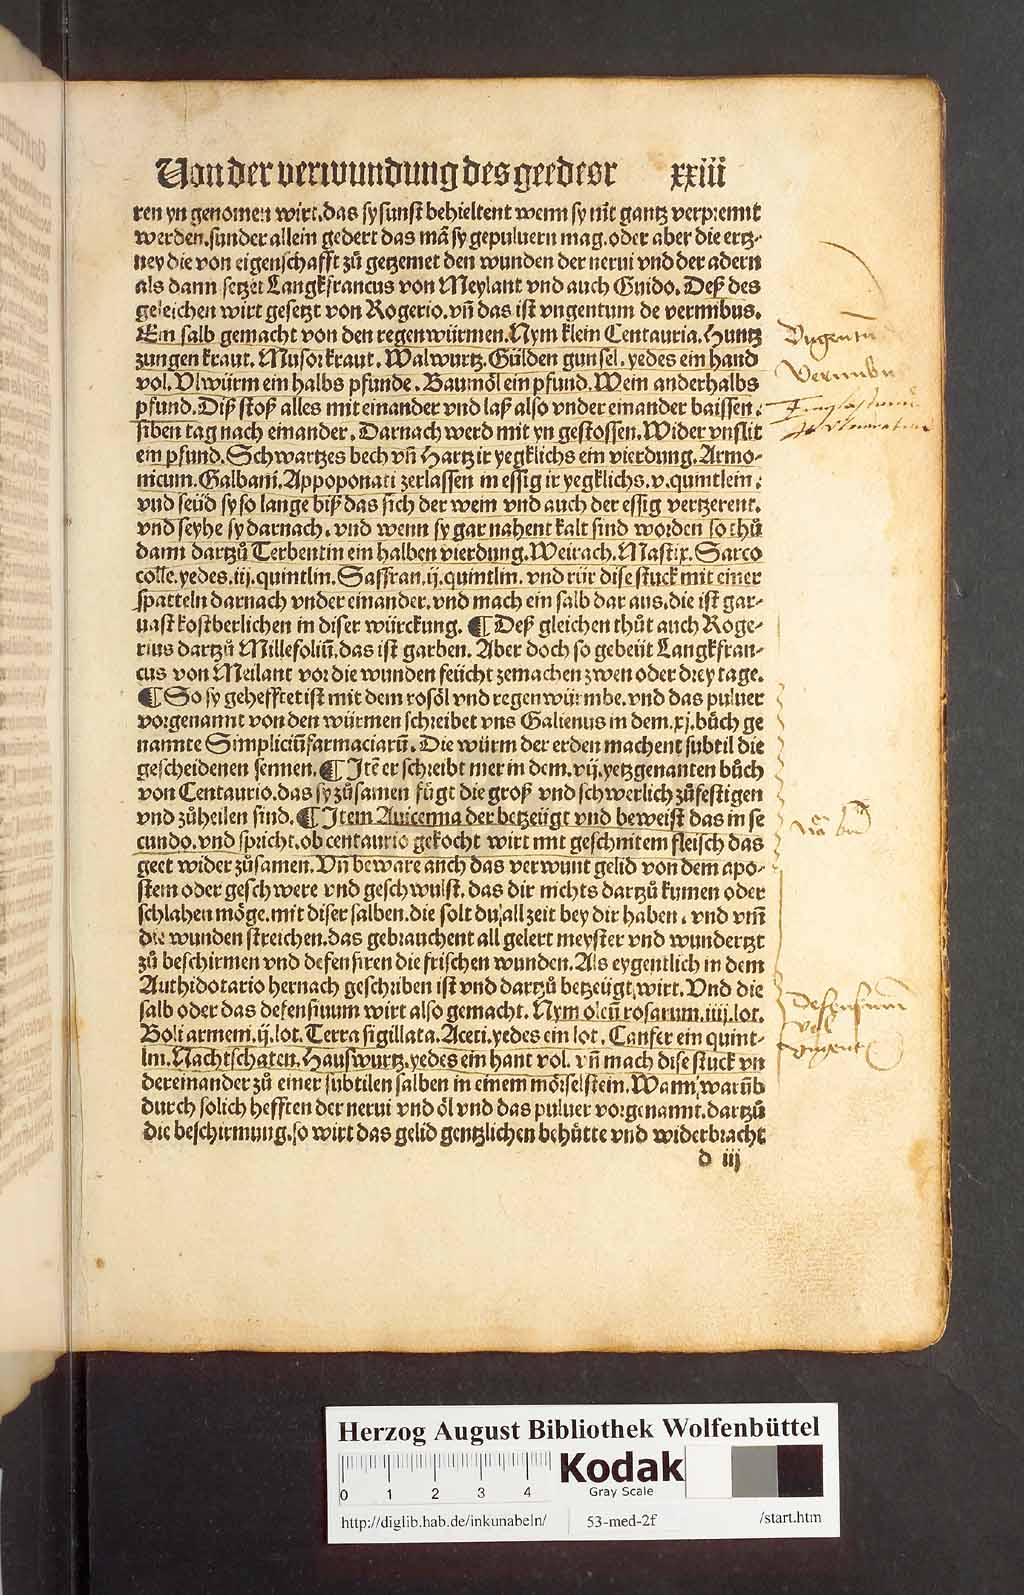 Von der verwundung des geedesr xxiii
ren yn genomen wirt. das sy sunst behieltent wenn sy nit gantz verprennt
werden. sunder allein gedert das mā sy gepuluern mag. oder aber die ertz-
ney die von eigenschafft zů getzemet den wunden der nerui vnd der adern
als dann setzet Langkfrancus von Meylant vnd auch Guido. Deß des
geleichen wirt gesetzt von Rogerio. vñ das ist vngentum de vermibus.
Ein salb gemacht von den regenwürmen. Nym klein Centauria. Huntz
zungen kraut. Musorkraut. Walwurtz. Gülden gunsel. yedes ein hand
vol. Vlwürm ein halbs pfunde. Baumöl ein pfund. Wein anderhalbs
pfund. Diß stoß alles mit einander vnd laß also vnder einander baissen.
siben tag nach einander. Darnach werd mit yn gestossen. Wider vnslit
ein pfund. Schwartzes bech vñ Hartz ir yegklichs ein vierdung. Armo-
nicum. Galbani. Appoponati zerlassen in essig ir yegklichs. v. quintlein.
vnd seüd sy so lange biß das sich der wein vnd auch der essig vertzerent.
vnd seyhe sy darnach. vnd wenn sy gar nahent kalt sind worden so thů
dann dartzů Terbentin ein halben vierdung. Weirach. Mastix. Sarco
colle. yedes. iij. quintlin. Saffran. ij. quintlin. vnd rür dise stuck mit einer
spatteln darnach vnder einander. vnd mach ein salb dar aus. die ist gar-
uast kostberlichen in diser würckung. ¶ Deß gleichen thůt auch Roge-
rius dartzů Millefoliū. das ist garben. Aber doch so gebeüt Langkfran-
cus von Meilant vor die wunden feücht zemachen zwen oder drey tage.
¶ So sy gehefftet ist mit dem rosöl vnd regenwürmbe. vnd das puluer
vorgenannt von den würmen schreibet vns Galienus in dem. xj. bůch ge
nannte Simpliciū farmaciarū. Die würm der erden machent subtil die
gescheidenen sennen. ¶ Itē er schreibt mer in dem. vij. yetzgenanten bůch
von Centaurio. das sy zůsamen fügt die groß vnd schwerlich zůfestigen
vnd zůheilen sind. ¶ Item Auicenna der betzeügt vnd beweist das in se
cundo. vnd spricht. ob centaurio gekocht wirt mit geschnitem fleisch das
geet wider zůsamen. Vñ beware auch das verwunt gelid von dem apo-
stem oder geschwere vnd geschwulst. das dir nichts dartzů kumen oder
schlahen möge. mit diser salben. die solt du all zeit bey dir haben. vnd vm̄
die wunden streichen. das gebrauchent all gelert meyster vnd wundertzt
zů beschirmen vnd defensiren die frischen wunden. Als eygentlich in dem
Anthidotario hernach geschriben ist vnd dartzů betzeügt wirt. Vnd die
salb oder das defensiuum wirt also gemacht. Nym oleū rosarum. iiij. lot.
Boli armeni. ij. lot. Terra sigillata. Aceti. yedes ein lot. Canfer ein quint-
lin. Nachtschaten. Hauswurtz. yedes ein hant vol. vñ mach dise stuck vn
dereinander zů einer subtilen salben in einem mörselstein. Wann warūb
durch solich hefften der nerui vnd öl vnd das puluer vorgenannt. dartzů
die beschirmung. so wirt das gelid gentzlichen behütte vnd widerbracht
d iij
Vngentū
Vermibu
Defensiuum
vel
vngent
Herzog August Bibliothek Wolfenbüttel
0 1 2 3 4
Kodak
Gray Scale
http://diglib.hab.de/inkunabeln/ 53-med-2f /start.htm